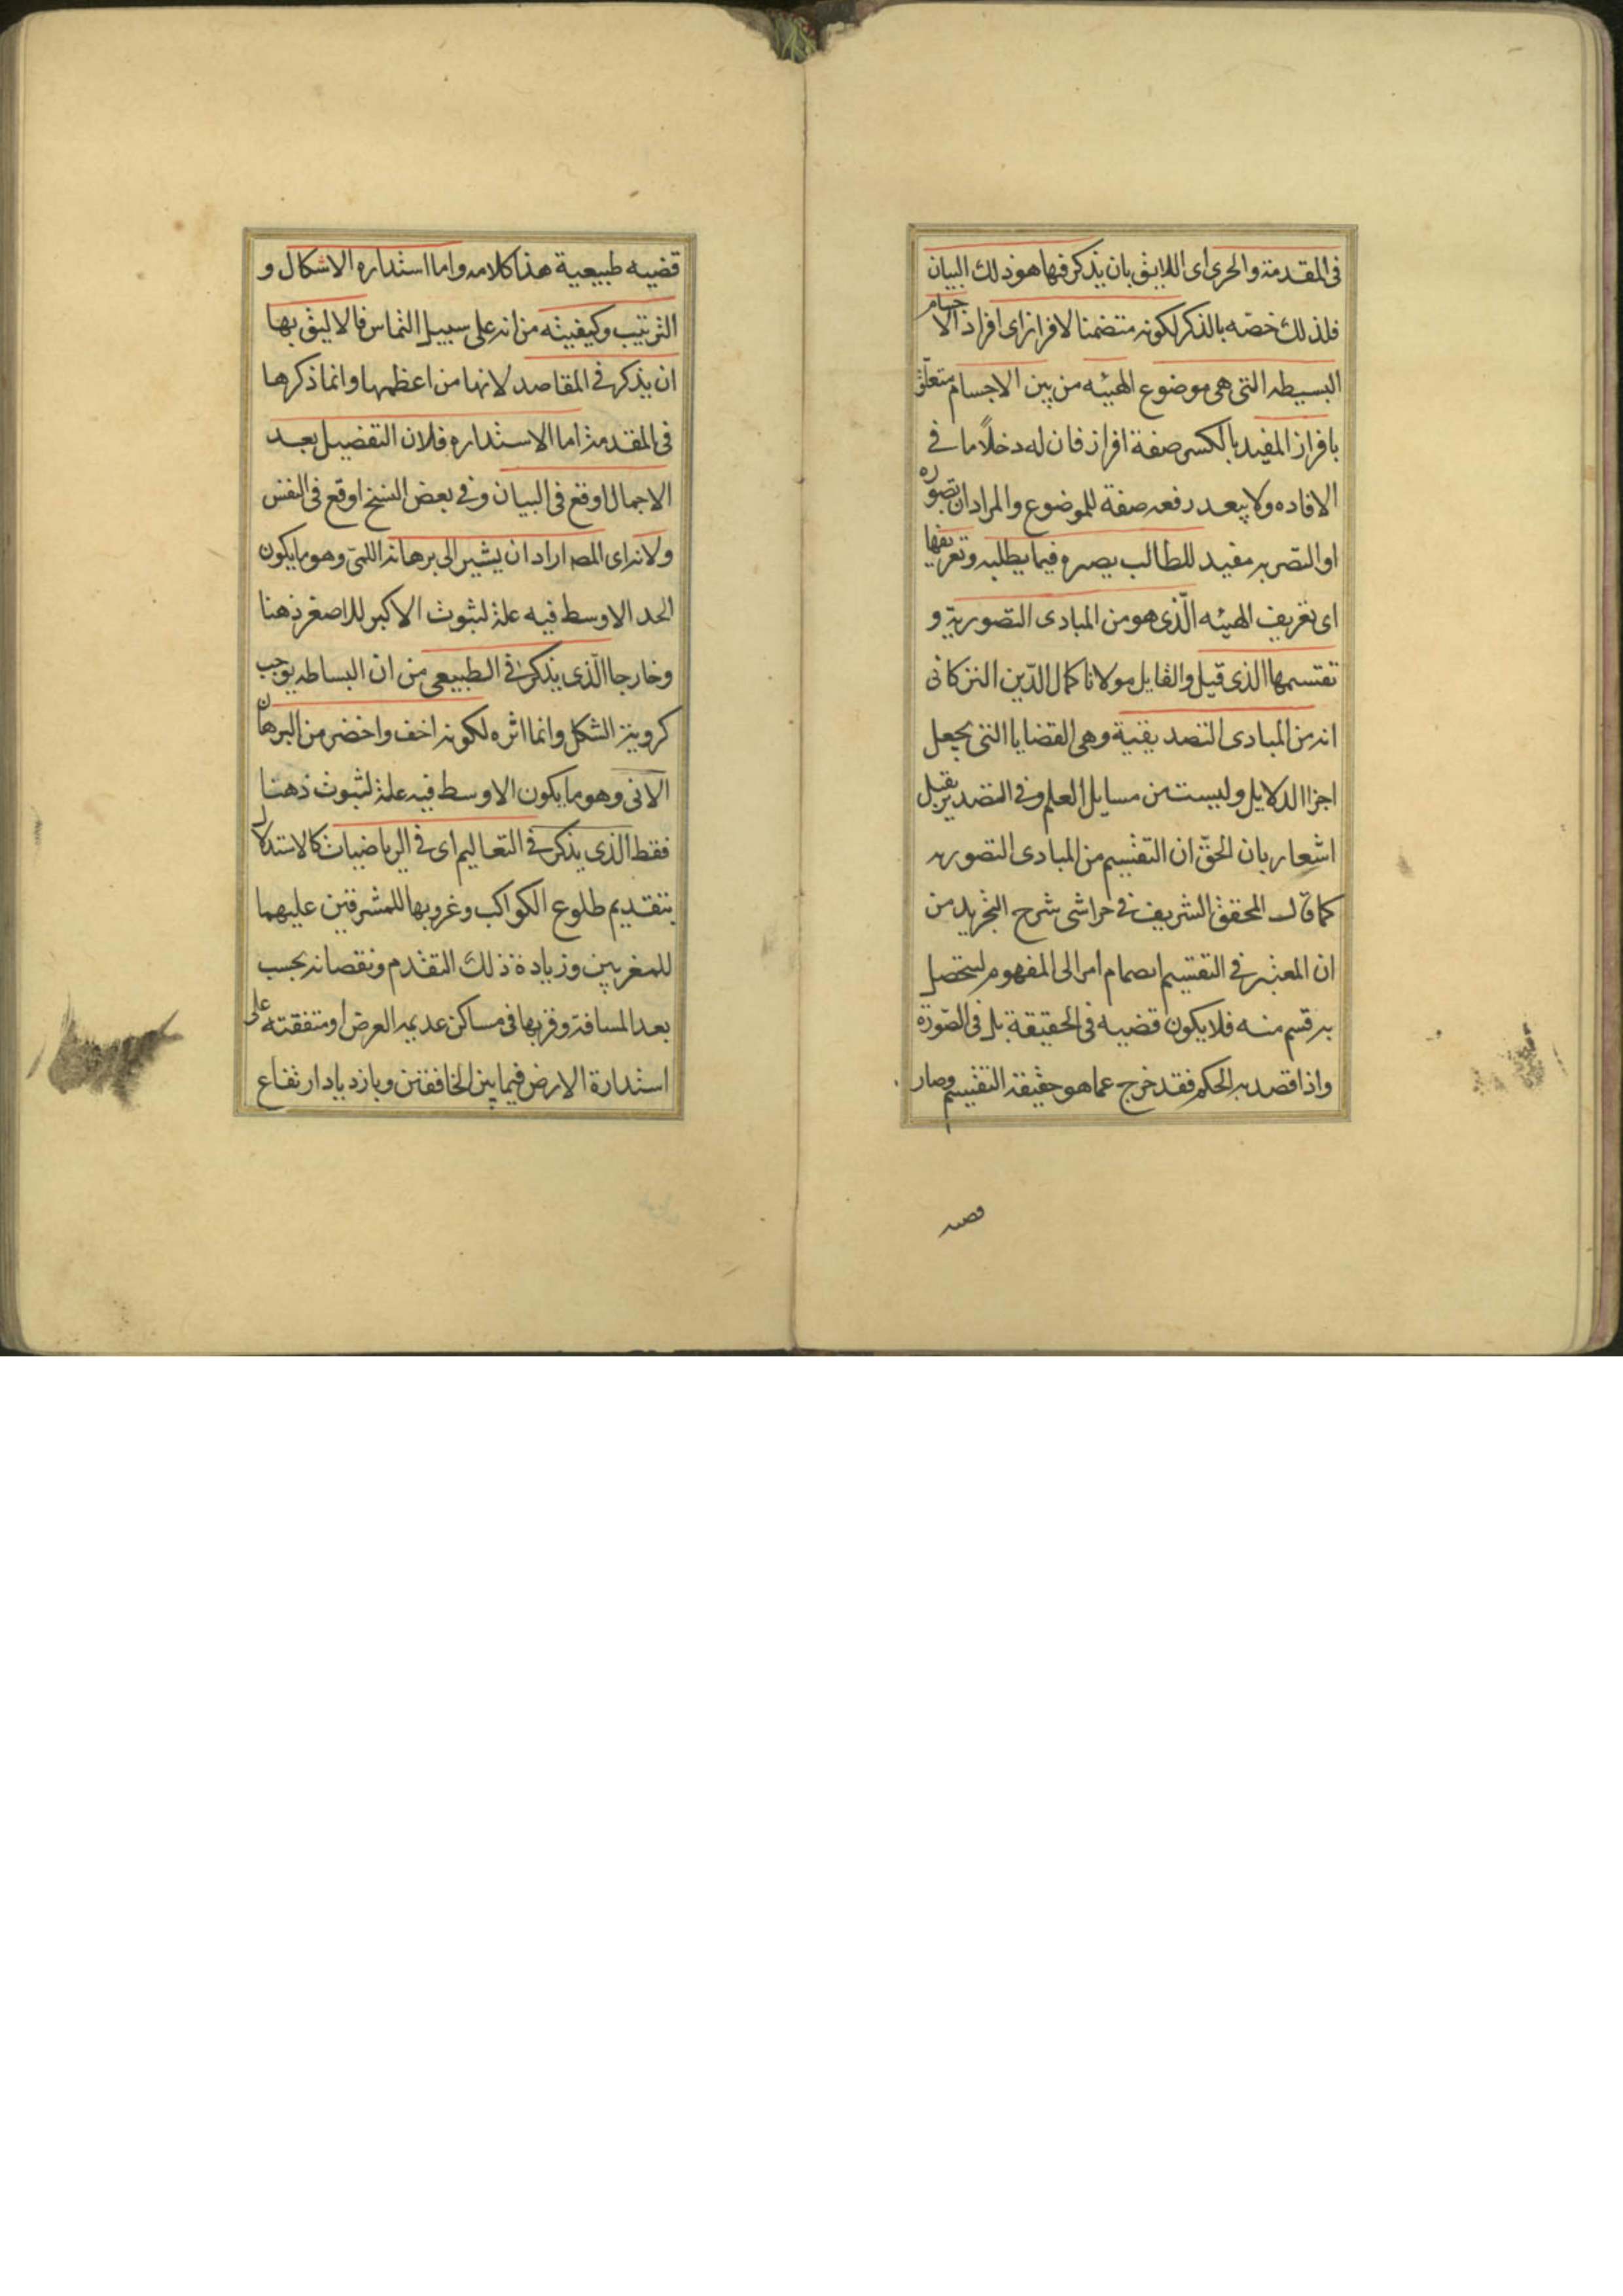 فى المقدمة والحرى اى اللايق بان يذكر فيها هو ذلك البيان
فلذلك خصه بالذكر لكونه متضمنا لافراز اى افراد الاجسام
البسيطه التى هى موضوع الهيئه من بين الاجسام متعلق
بافراز المفيد بالكسر صفة افراز فان له دخلاً ما فى
الافاده ولا يبعد رفعه صفة للموضوع والمراد ان تصوره
او التصر به مفيد للطالب يصره فيما يطلبه وتعريفها
اى تعريف الهيئه الّذى هو من المبادى التصورية و
تقسيمها الذى قيل والقايل مولانا كمال الدّين التركانى
انه من المبادى التصديقية وهى القضايا التى يجعل
اجزا الدلايل وليست من مسايل العلم وفى التصدير بقيل
اشعار بان الحقّ ان التقسيم من المبادى التصوريه
كما قال المحقق الشريف فى حواشى شرح التجريد من
ان المعتبر فى التقسيم انضمام امر الى المفهوم ليتحصل
به قسم منه فلا يكون قضيه فى الحقيقة بل فى الصّورة
واذا قصد به الحكم فقد خرج عما هو حقيقة التقسيم وصار
قضيه
قضيه طبيعية هذا كلامه واما استداره الاشكال و
الترتيب وكيفيته من انه على سبيل التماس فالاليق بها
ان يذكر فى المقاصد لانها من اعظمها وانما ذكرها
فى المقدمة اما الاستداره فلان التفضيل بعد
الاجمال اوقع فى البيان وفى بعض النسخ اوقع فى النفس
ولانه اى المصه اراد ان يشير الى برهانه اللمّى وهو ما يكون
الحد الاوسط فيه علة لثبوث الاكبر للاصغر ذهنا
وخارجا الّذى يذكر فى الطبيعى من ان البساطه يوجب
كروية الشكل وانما اثره لكونه اخف واخضر من البرهان
الانى وهو ما يكون الاوسط فيه علة لثبوث ذهنا
فقط الذى يذكر فى التعاليم اى فى الرياضيات كالاستدلال
بتقديم طلوع الكواكب وغروبها للمشرقين عليهما
للمغربين وزيادة ذلك التقدم ونقصانه بحسب
بعد المسافة وقربها فى مساكن عديمه العرض او متفقته على
استدارة الارض فيما بين الخافقين وبازدياد ارتفاع